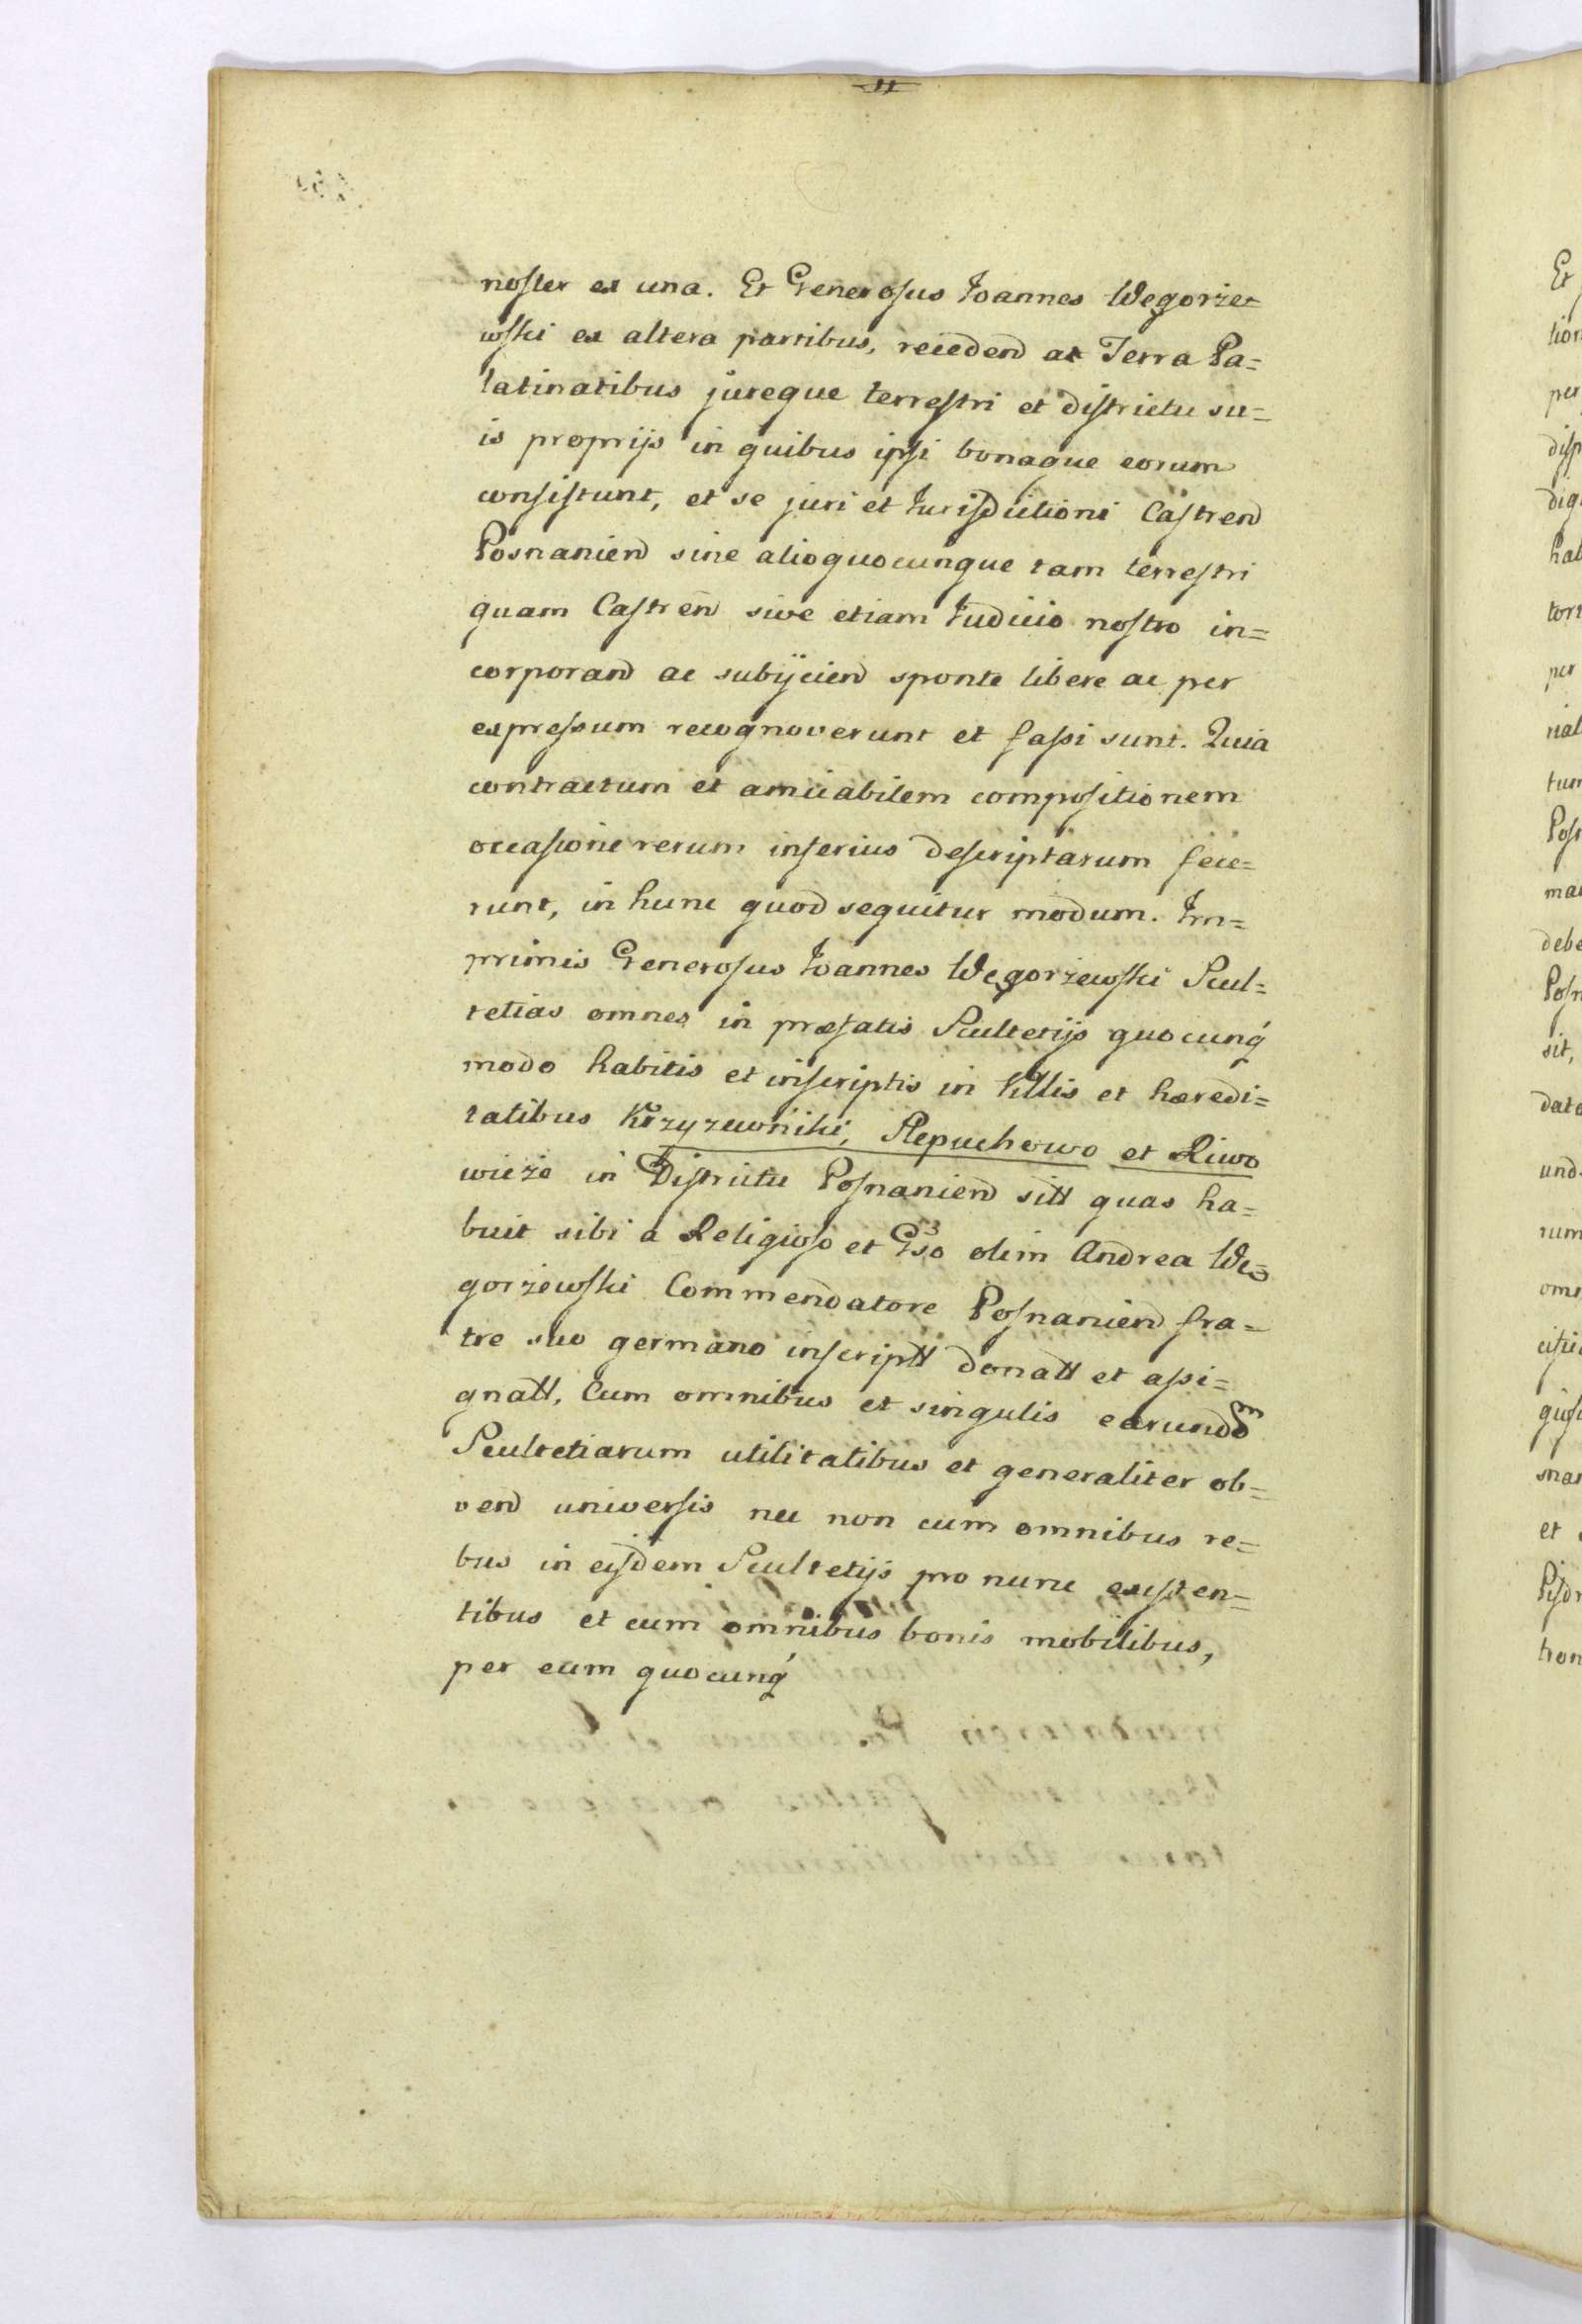 noster ex una. Et Generosus Joannes Węgorze=
wski ex altera partibus, recedend at Terra Pa=
latinatibus jureque terrestri et districtu su=
is proprijs in quibus ipsi bonaque eorum
consistunt, et se juri et Jurisdictioni Castren̄
Posnanien̄ sine alioquocunque tam terrestri
quam Castren̄ sive etiam Judicio nostro in=
corporand ac subijcien̄ sponte libere ac per
expressum recognoverunt et fassi sunt. Quia
contractum et amicabilem compositionem
occasione rerum inferius descriptarum fece=
runt, in hunc quod sequitur modum. Im=
primis Generosus Joannes Węgorzewski Scul=
tetias omnes in præfatis Scultetijs quocunq́
modo habitis et inscriptis in Villis et hæredi=
tatibus Krzyzewniki, Psepuchowo et Liwo
wieże in Districtu Posnanien̄ sitt quas ha=
buit sibi a Religioso et Gso olim Andrea We=
gorżewski Commendatore Posnanien̄ fra=
tre suo germano inscriptt donatt et assi=
gnatt, Cum omnibus et singulis earundem
Scultetiarum utilitatibus et generaliter ob=
vend universis nec non cum omnibus re=
bus in eisdem Scultetijs pro nunc existen=
tibus et cum omnibus bonis mobilibus,
per eum quocunq́